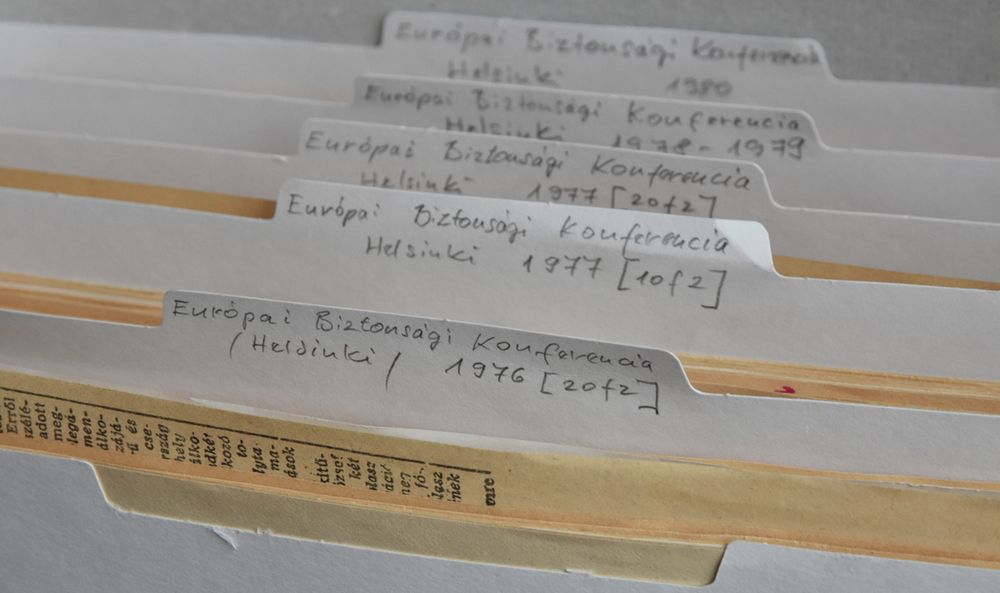 Európai Biztonsági Konferencia
Helsinki 1980
Európai Biztonsági Konferencia
Helsinki 1978-1979
Európai Biztonsági Konferencia
Helsinki 1977 [2of2]
Európai Biztonsági Konferencia
Helsinki 1977 [1of2]
Európai Biztonsági Konferencia
/Helsinki/ 1976 [2of2]
Erről
szélé-
adott
meg-
legá-
men-
álko-
zájá-
ű és
cse-
rszág
hely
álko-
dkét
kozó
to-
lyta
ma-
ások
két
nek